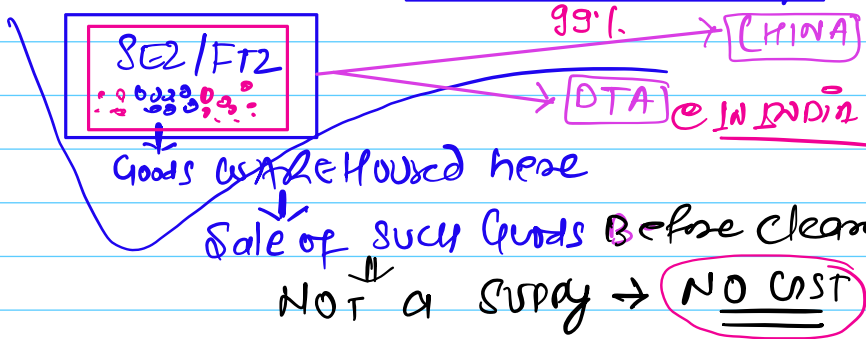 99%
SEZ/FTZ
CHINA
DTA @ IN INDIA
Goods WAREHoused here
Sale of such Goods Before Clear
NOT a Supply → NO GST